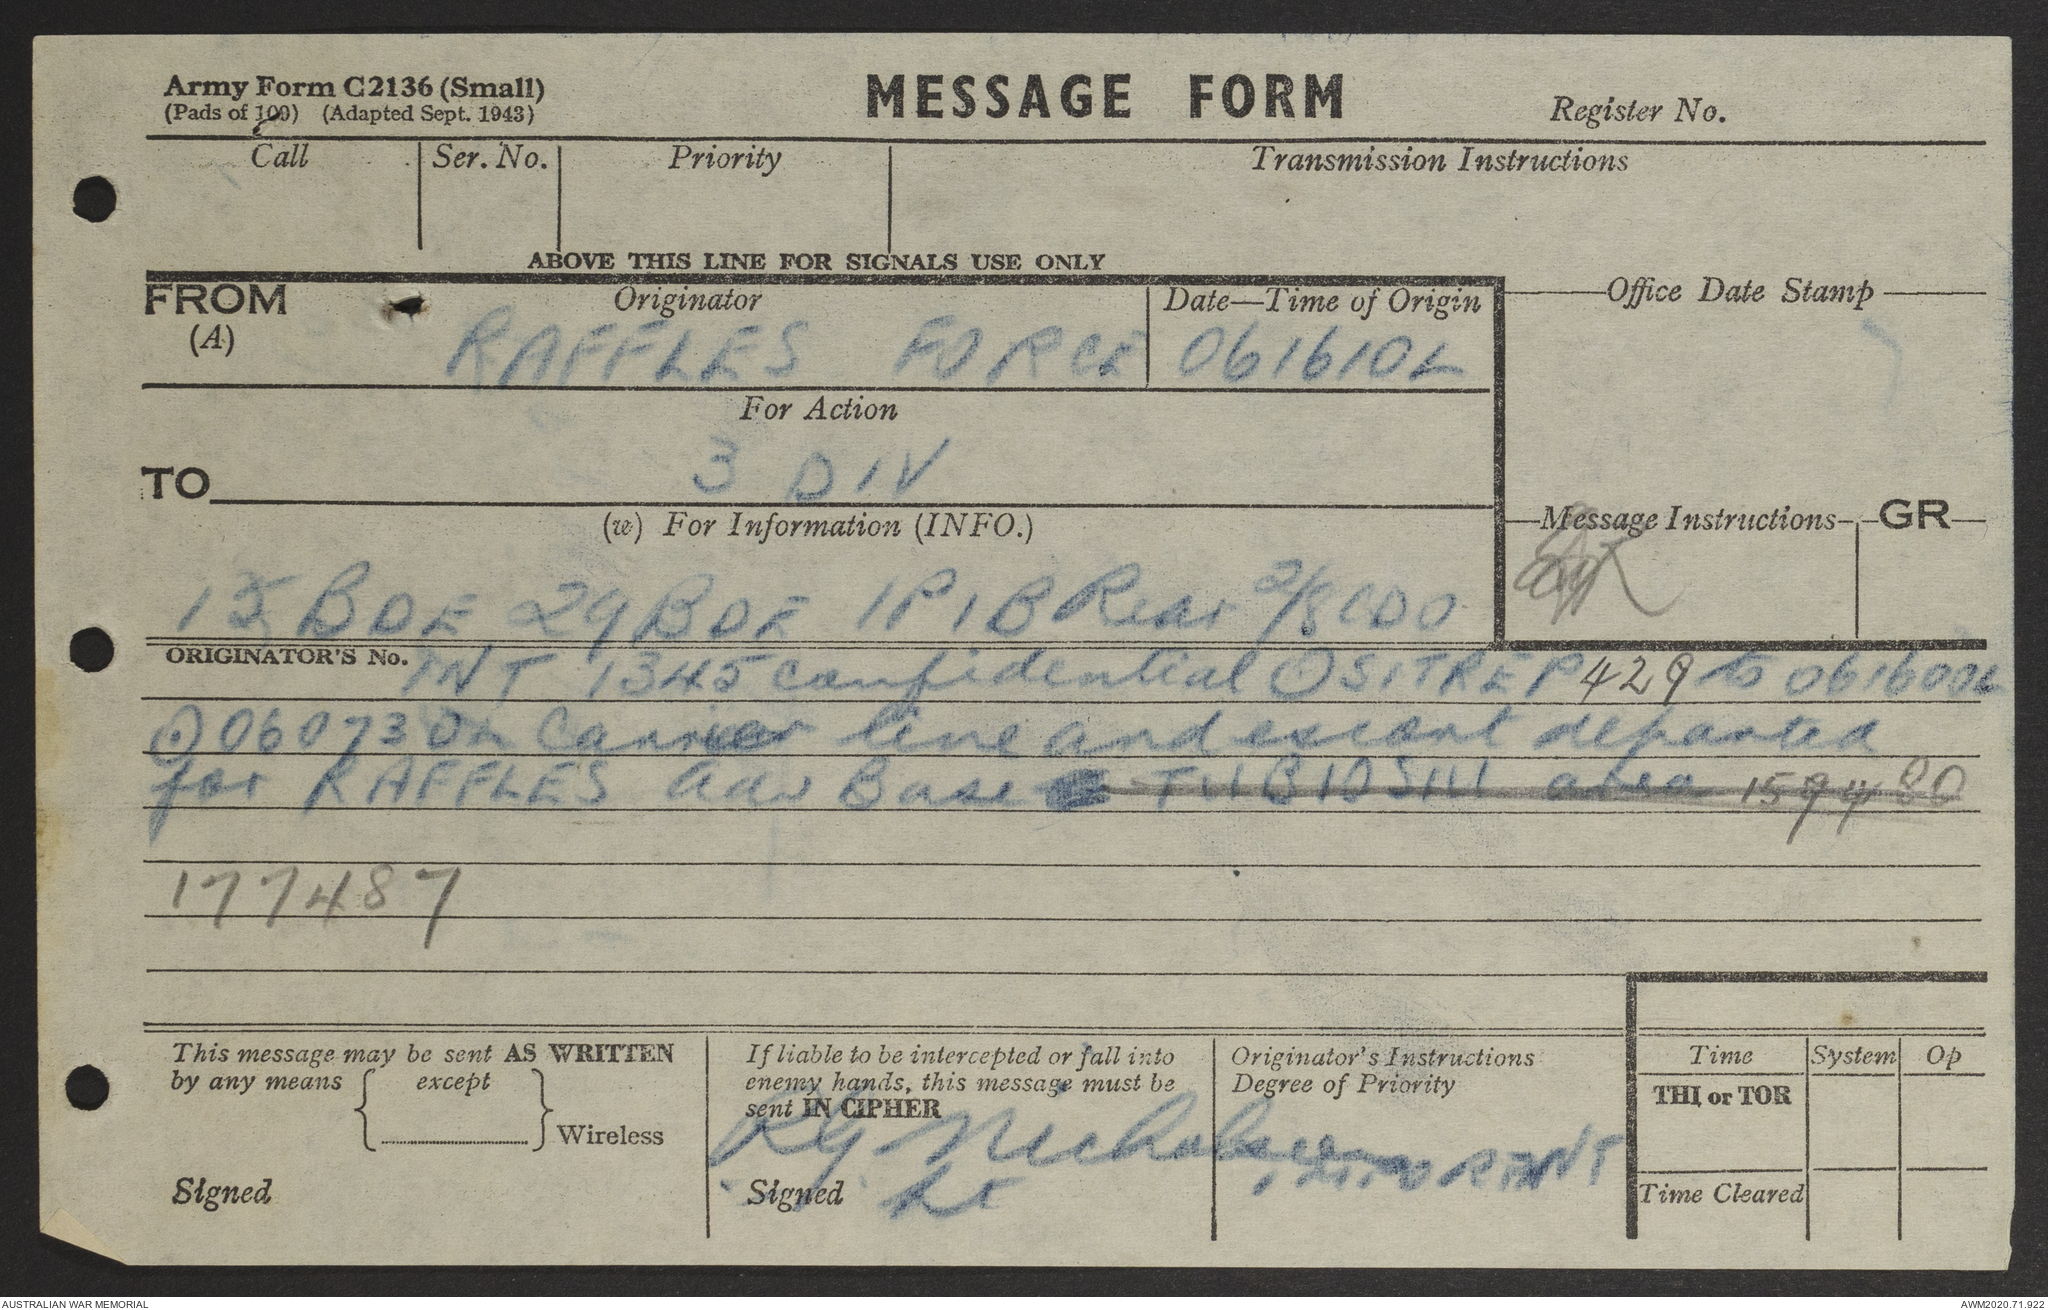 Army Form C2136 (Small)
(Pads of 100) (Adapted Sept. 1943)
MESSAGE FORM
Register No.
Call
Ser. No.
Priority
Transmission Instructions
ABOVE THIS LINE FOR SIGNALS USE ONLY
FROM
(A)
Originator
RAFFLES FORCE
Date—Time of Origin
061610L
Office Date Stamp
For Action
TO
3 DIV
(w) For Information (INFO.)
15 BDE 29 BDE 1 PIB Rear 2/8 CDO
Message Instructions
GR
ORIGINATOR'S No.
INT 1345 confidential ⊙ SITREP 429 to 061600L
⊙ 060730L Carrier line and escort departed
for RAFFLES adv Base area 159480
177487
This message may be sent AS WRITTEN
by any means { except } Wireless
Signed
If liable to be intercepted or fall into
enemy hands, this message must be
sent IN CIPHER
Signed
Lt
Originator's Instructions
Degree of Priority
IMPORTANT
Time
System
Op
THI or TOR
Time Cleared
AUSTRALIAN WAR MEMORIAL
AWM2020.71.922